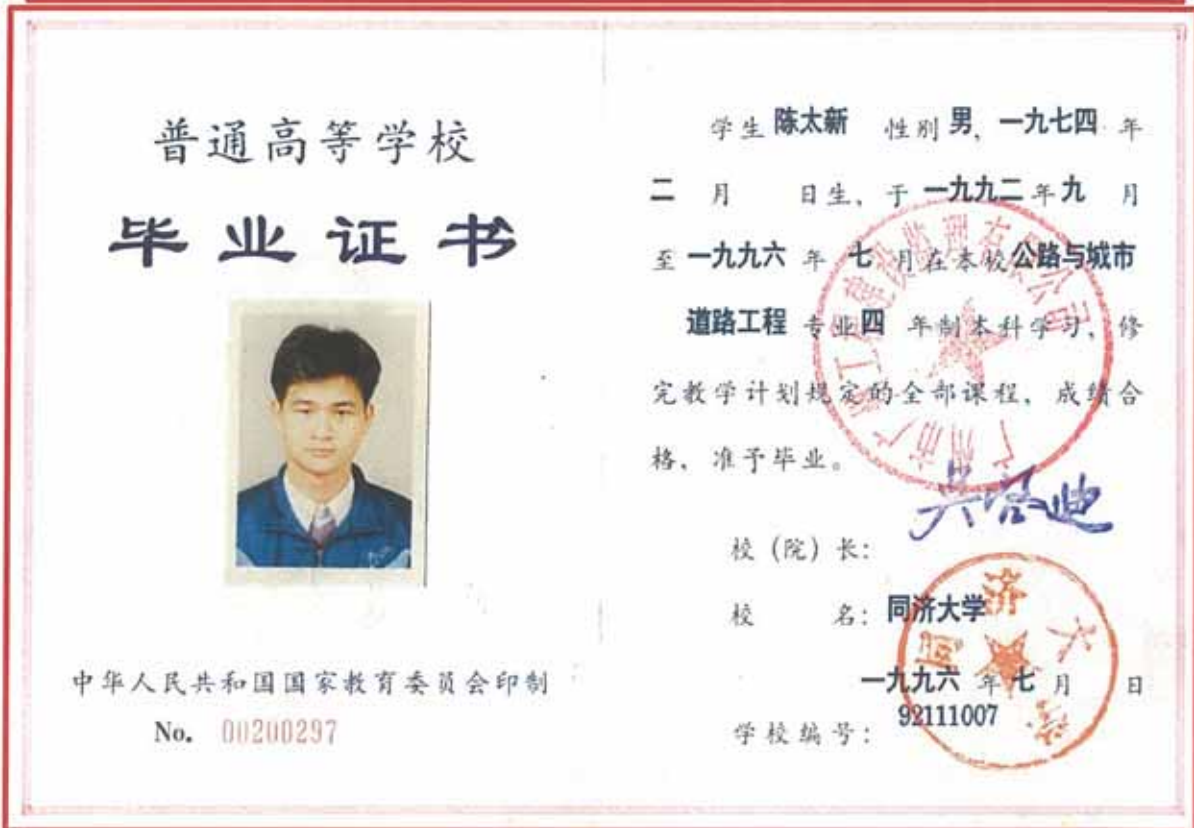 普通高等学校
毕业证书
中华人民共和国国家教育委员会印制
No. 00200297
学生 陈太新 性别 男, 一九七四 年
二 月 日生、于 一九九二 年 九 月
至 一九九六 年 七 月在本校 公路与城市
道路工程 专业 四 年制本科学习, 修
完教学计划规定的全部课程, 成绩合
格, 准予毕业。
校 (院) 长: 吴启迪
校 名: 同济大学
一九九六 年 七 月 日
学校编号: 92111007
同济大学